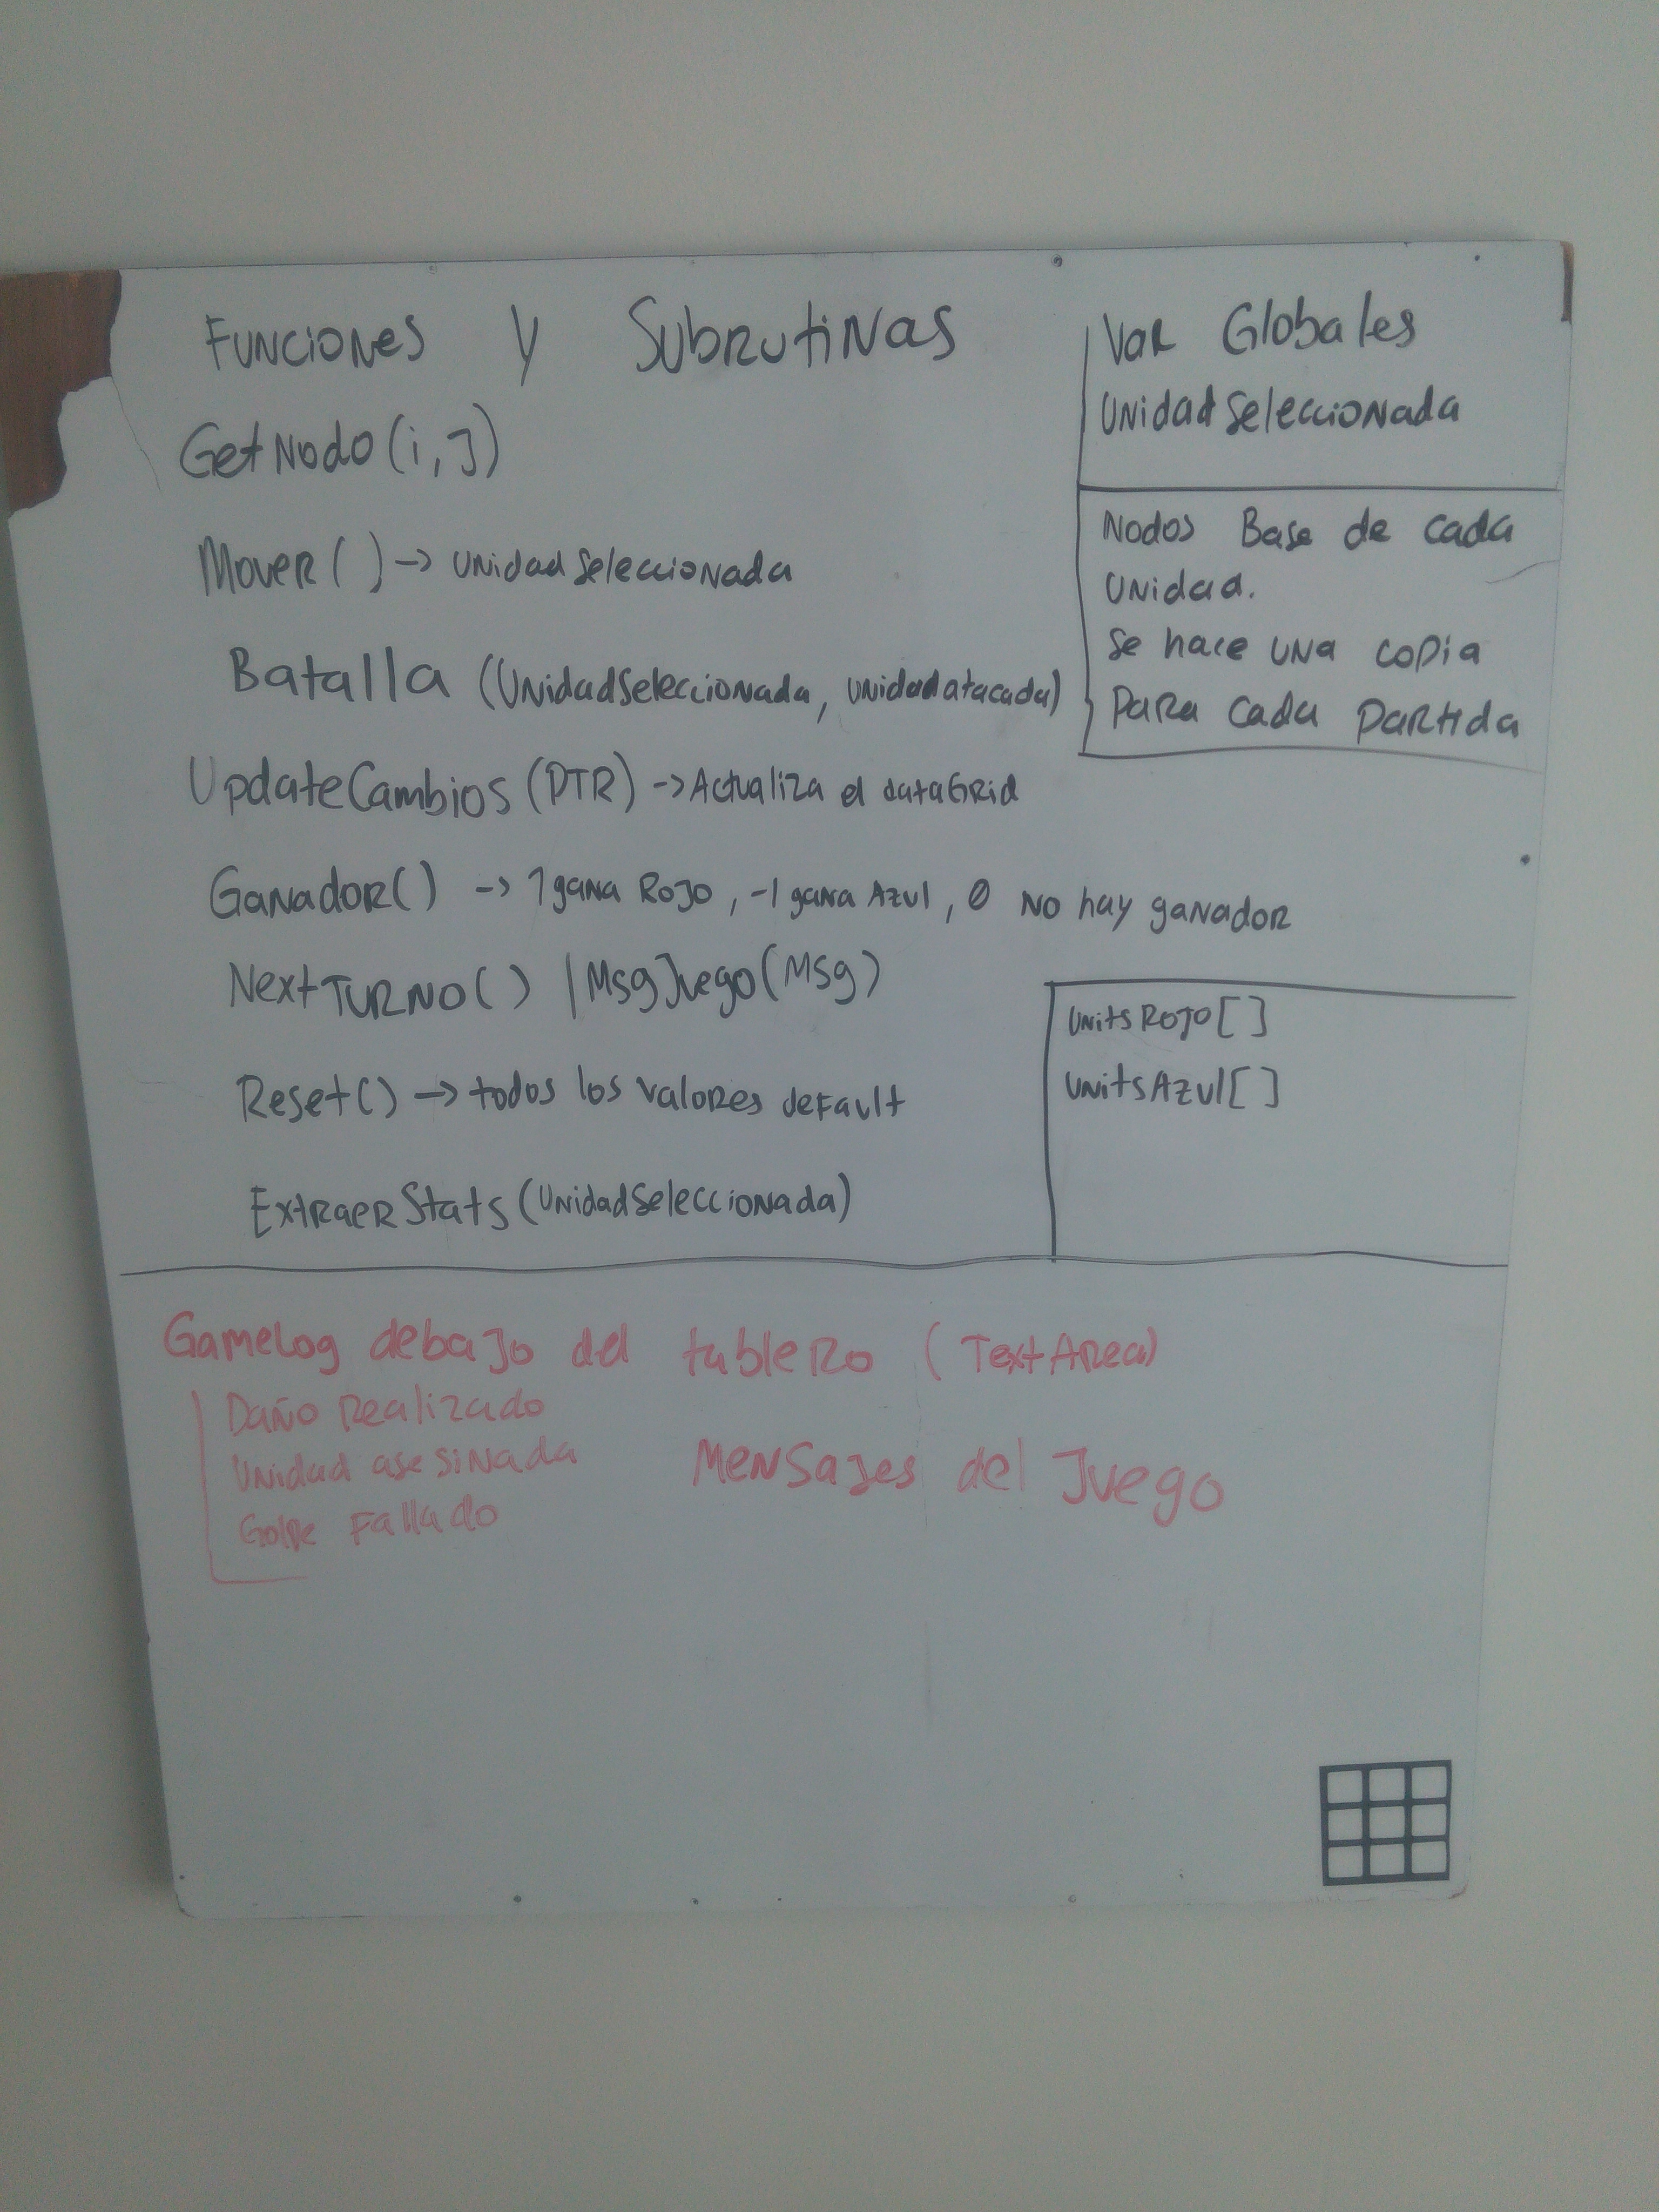 Funciones y Subrutinas
GetNodo(i,J)
Mover() -> UnidadSeleccionada
Batalla (UnidadSeleccionada, unidadatacada)
UpdateCambios(PTR) -> Actualiza el dataGrid
Ganador() -> 1 gana Rojo, -1 gana Azul, 0 No hay ganador
NextTurno() | MsgJuego(Msg)
Reset() -> todos los valores default
ExtraerStats(UnidadSeleccionada)
Var Globales
UnidadSeleccionada
Nodos Base de cada
Unidad.
Se hace una copia
Para cada Partida
UnitsRojo[]
UnitsAzul[]
Gamelog debajo del tablero (TextArea)
Daño Realizado
Unidad asesinada
Golpe Fallado
Mensajes del Juego